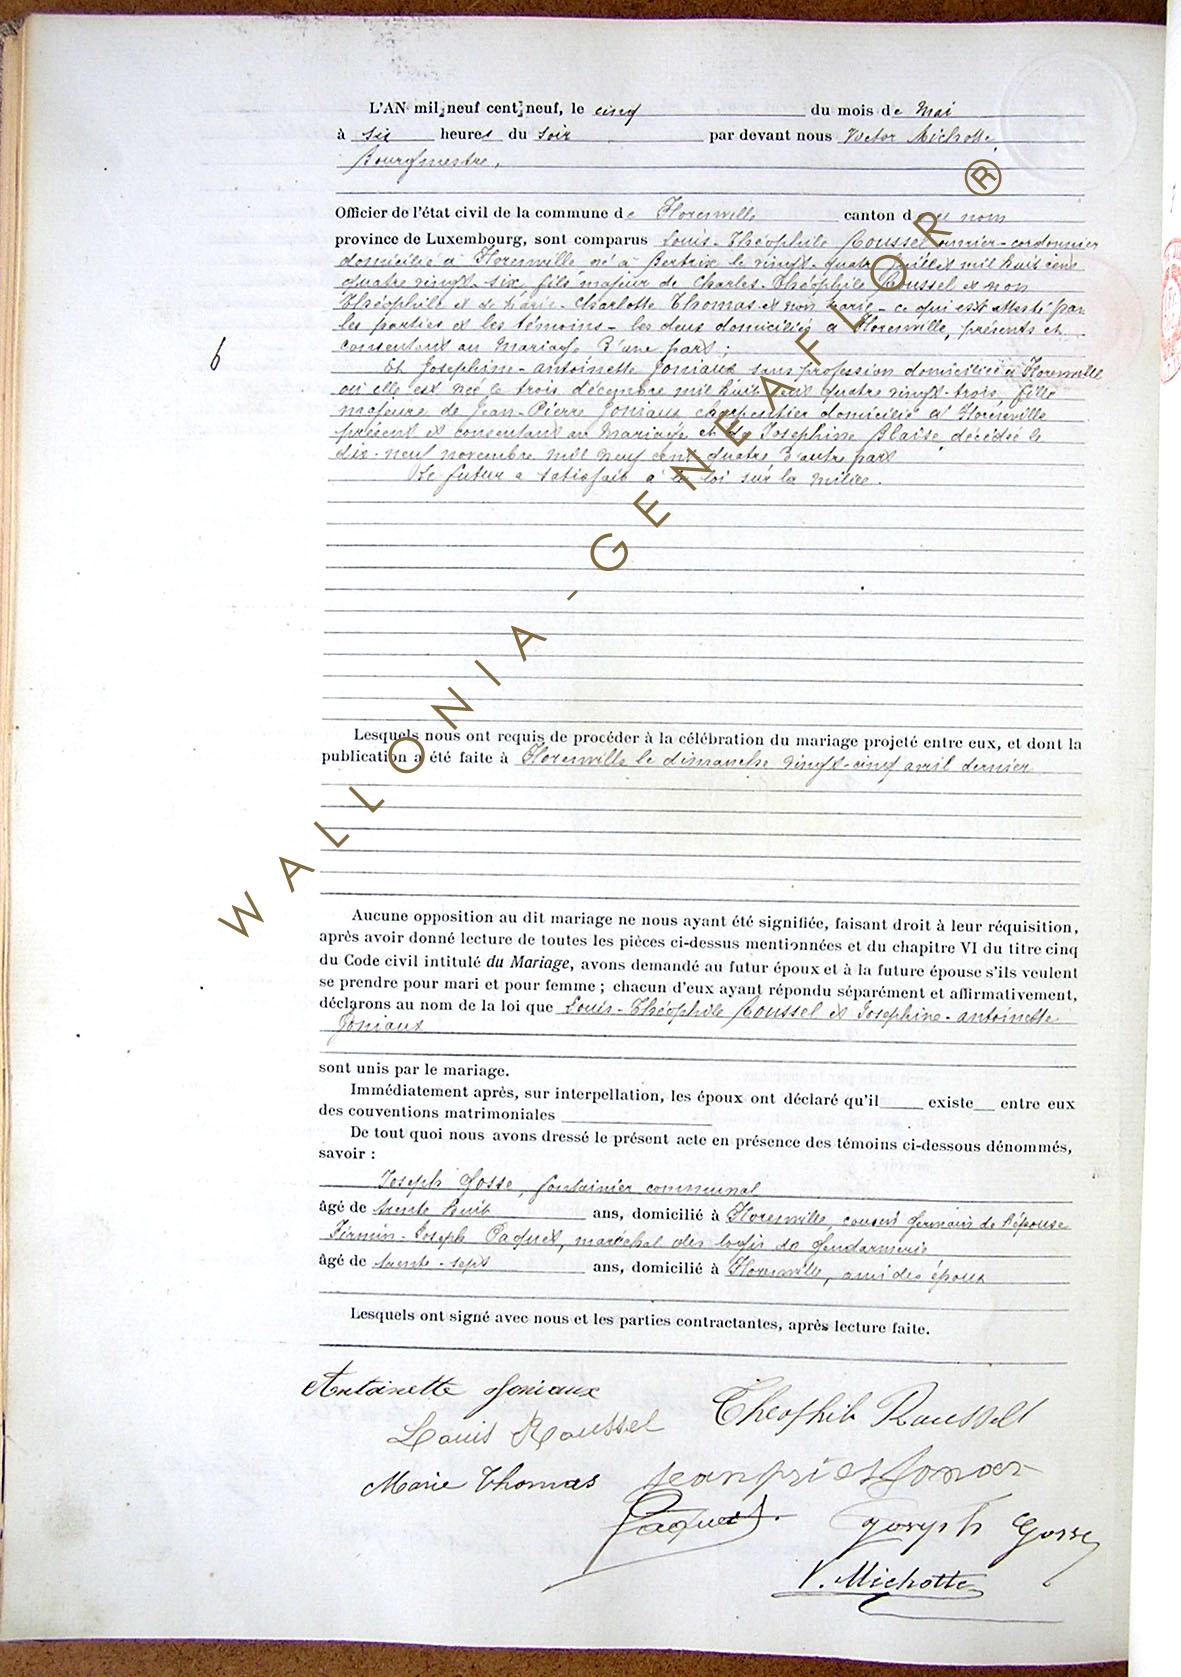 L'AN mil neuf cent neuf, le cinq du mois de Mai
à six heures du soir par devant nous Victor Michotte,
Bourgmestre,
Officier de l'état civil de la commune de Florenville canton de ce nom
province de Luxembourg, sont comparus Louis-Théophile Roussel ouvrier-cordonnier
domicilié à Florenville né à Bertrix le vingt-quatre juillet mil huit cent
quatre vingt-six, fils majeur de Charles-Théophile Roussel et non
Théophile et de Marie-Charlotte Thomas et non Marie - ce qui est attesté par
les parties et les témoins - les deux domiciliés à Florenville, présents et
consentant au mariage d'une part;
Et Josephine-antoinette Joniaux sans profession domiciliée à Florenville
où elle est née le trois décembre mil huit cent quatre vingt-trois, fille
majeure de Jean-Pierre Joniaux charpentier domicilié à Florenville
présent et consentant au Mariage et de Josephine Blaise, décédée le
dix-neuf novembre mil neuf cent quatre d'autre part
Le futur a satisfait à la loi sur la milice.
6
Lesquels nous ont requis de procéder à la célébration du mariage projeté entre eux, et dont la
publication a été faite à Florenville le dimanche vingt-cinq avril dernier
Aucune opposition au dit mariage ne nous ayant été signifiée, faisant droit à leur réquisition,
après avoir donné lecture de toutes les pièces ci-dessus mentionnées et du chapitre VI du titre cinq
du Code civil intitulé du Mariage, avons demandé au futur époux et à la future épouse s'ils veulent
se prendre pour mari et pour femme ; chacun d'eux ayant répondu séparément et affirmativement,
déclarons au nom de la loi que Louis-Théophile Roussel et Josephine-antoinette
Joniaux
sont unis par le mariage.
Immédiatement après, sur interpellation, les époux ont déclaré qu'il existe entre eux
des conventions matrimoniales
De tout quoi nous avons dressé le présent acte en présence des témoins ci-dessous dénommés,
savoir :
Joseph Gosse, fontainier communal
âgé de trente huit ans, domicilié à Florenville, cousin germain de l'épouse
Firmin-Joseph Paquet, maréchal des logis de gendarmerie
âgé de trente-sept ans, domicilié à Florenville, ami des époux
Lesquels ont signé avec nous et les parties contractantes, après lecture faite.
Antoinette Joniaux
Théophile Roussel
Louis Roussel
Marie Thomas
Paquet
Joseph Gosse
V. Michotte
WALLONIA-GENEAFLOR®